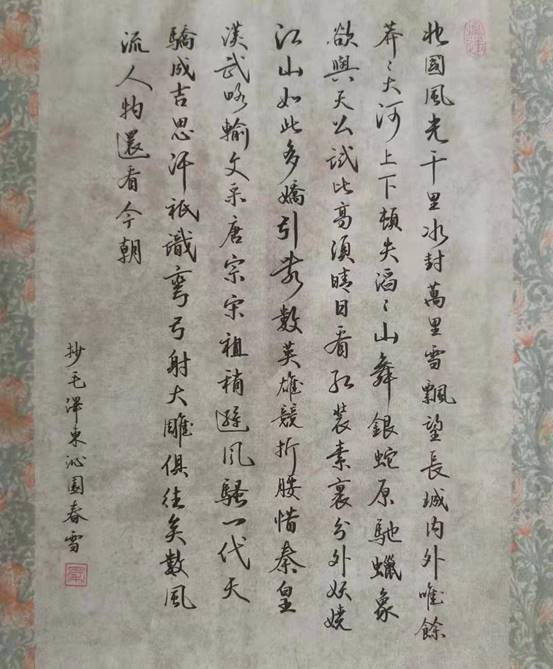 北國風光千里冰封萬里雪飄望長城内外唯餘
莽〻大河上下頓失滔〻山舞銀蛇原馳蠟象
欲與天公試比高須晴日看紅裝素裹分外妖嬈
江山如此多嬌引無數英雄競折腰惜秦皇
漢武略輸文采唐宗宋祖稍遜風騷一代天
驕成吉思汗祇識彎弓射大雕俱往矣數風
流人物還看今朝
抄毛澤東沁園春雪